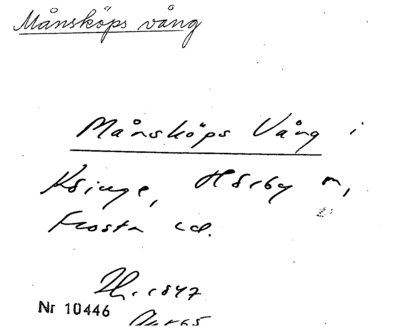 Månsköps vång
Månsköps Vång i
Ksinge, Hörby sn,
Frosta hd.
1847
Nr 10446